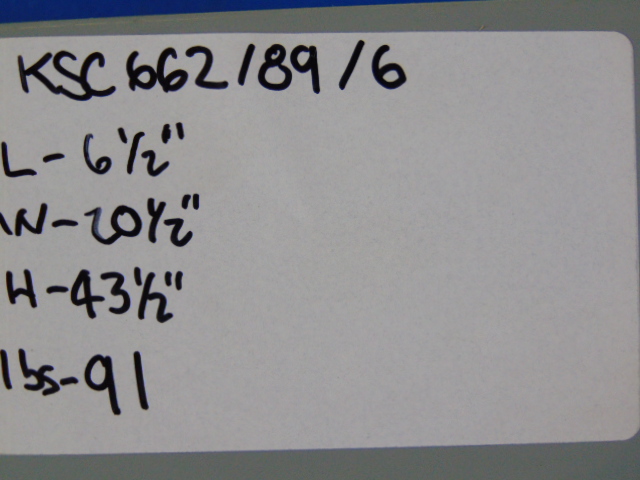 KSC662/89/6
L-6 1/2"
W-20 1/2"
H-43 1/2"
lbs-91